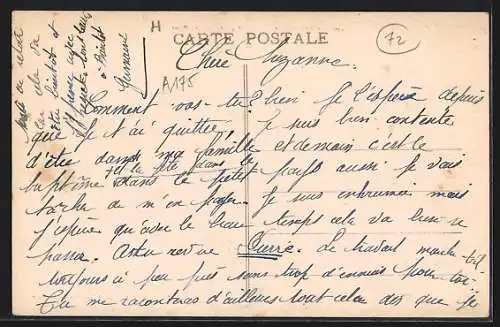 H
CARTE POSTALE
72
A175
Chère Suzanne.
Comment vas-tu? bien je l'espère depuis
que je t'ai quittée, je suis bien contente
d'être dans ma famille et demain c'est le
baptême et la fête dans le petit pays aussi je vais
tâcher de m'en payer. Je suis enrhumée mais
j'espère qu'avec le beau temps cela va bien se
passer. As-tu revue Pierre. Le travail marche-t-il
toujours à peu près sans trop d'ennuis pour toi
Tu me raconteras d'ailleurs tout cela dès que je
cela va
être bientôt
à bientôt
Germaine